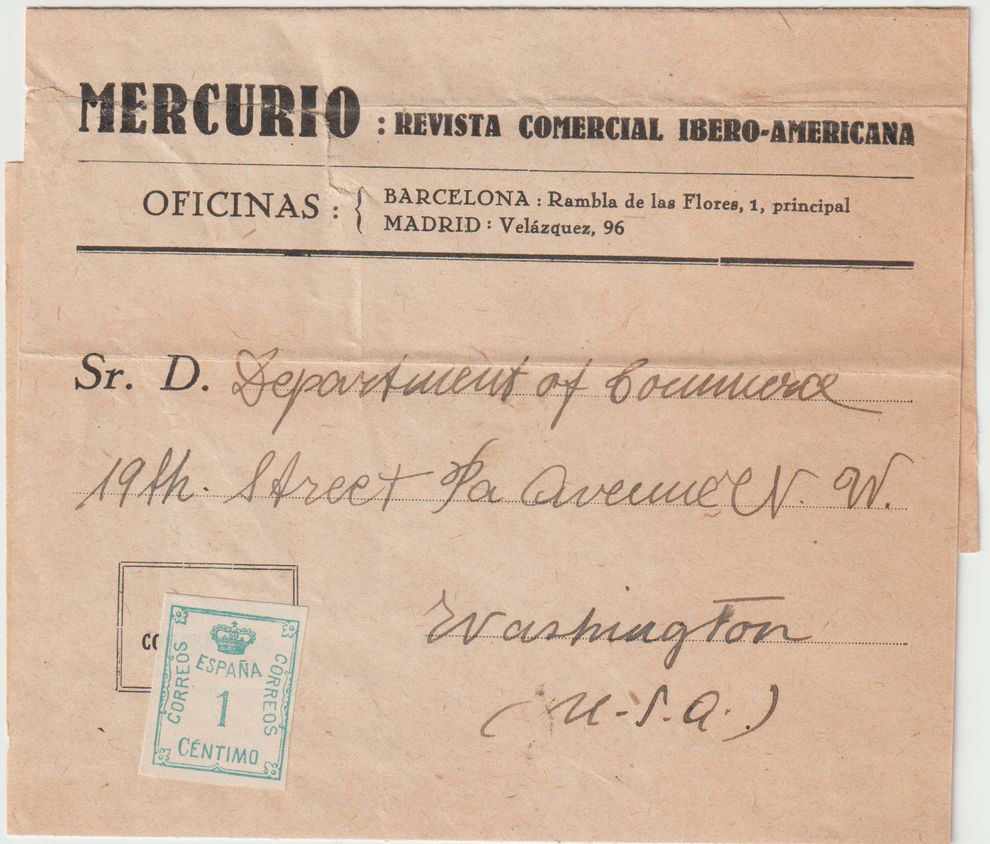 MERCURIO : REVISTA COMERCIAL IBERO-AMERICANA
OFICINAS : { BARCELONA : Rambla de las Flores, 1, principal
MADRID : Velázquez, 96
Sr. D. Department of Commerce
19th. Street Pa Avenue N. W.
Washington
(U.S.A.)
CO
CORREOS
ESPAÑA
CORREOS
1
CÉNTIMO